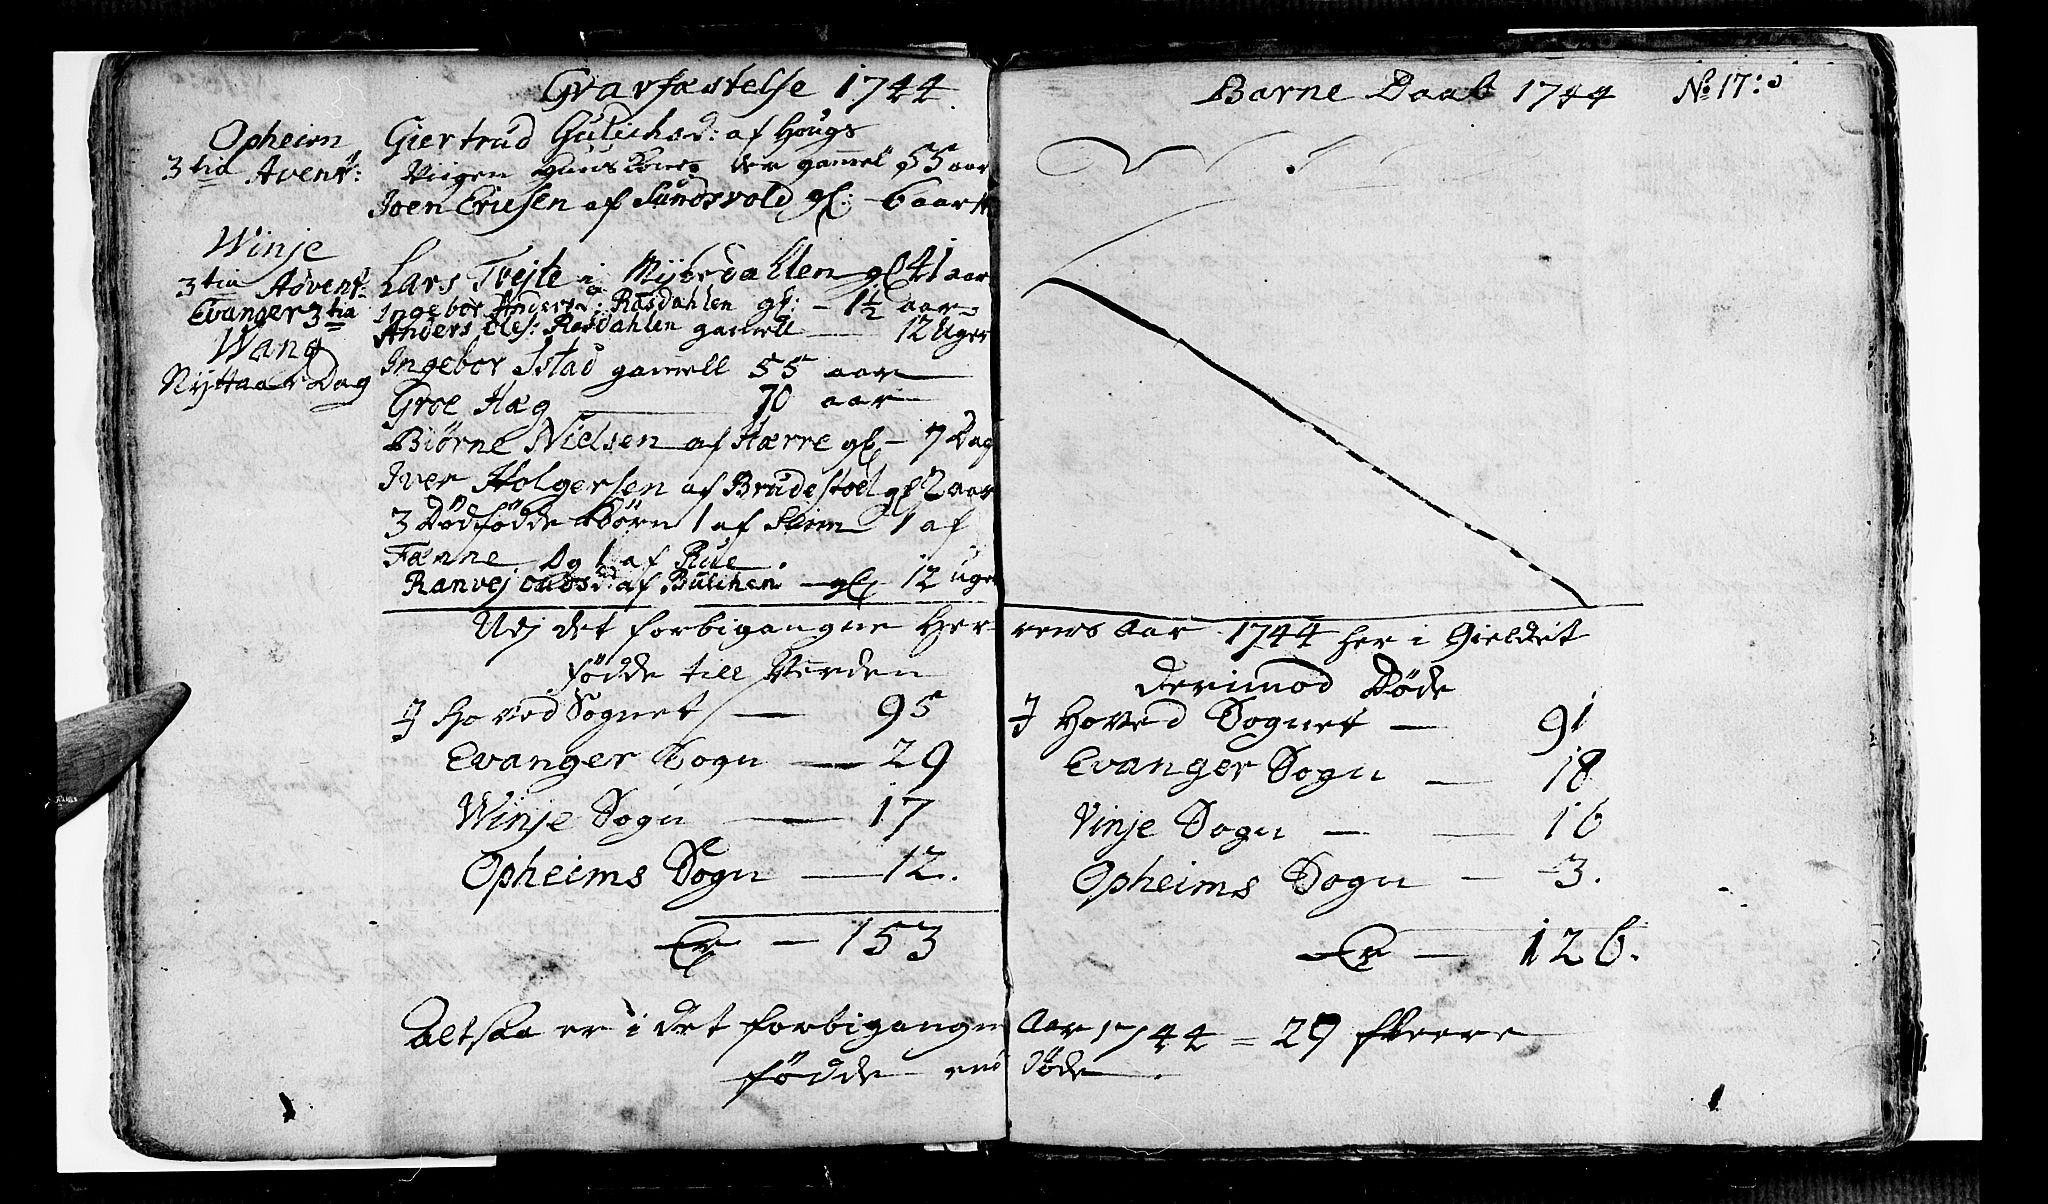 Gravfæstelse 1744.
Opheim
3tia Avent:
Giertrud Gulichsd: af Hougs
Viigen Huuskone der gamel 55 aar
Joen Ericsen af Sundsvold gl: 6 aar
Winje
3tia Advent:
Lars Tvejte i Myhrdahlen gl 41 aar
Evanger 3tia
Ingebor Andersd: Rasdahlen gl: - 1½ aar
Anders Oles: Rasdahlen gamell — 12 Uger
Wang
Nyttaar Dag
Ingebor Istad gamell 55 aar
Groe Hæg — 70 aar
Biørne Nielsen af Hærre gl - 7 Dag
Iver Holgersen af Brudestoel gl 2 aar
3 Dødfødde Børn 1 af Seim 1 af
Fænne Og 1 af Rue.
Ranvej Oladsd: af Bulchen - gl 12 Uger
Barne Daab 1744
No 17:
Udj det forbigangne Herrens Aar 1744 her i Gieldet
fødde till Verden
J Hoved Sognet — 95
Evanger Sogn — 29
Winje Sogn — 17
Opheims Sogn — 12.
Er — 153
derimod Døde
J Hoved Sognet — 91
Evanger Sogn — 18
Vinje Sogn — 16
Opheims Sogn - 3.
Er — 126.
altsaa er i det forbigangn Aar 1744 = 29 fleere
fødde end Døde.